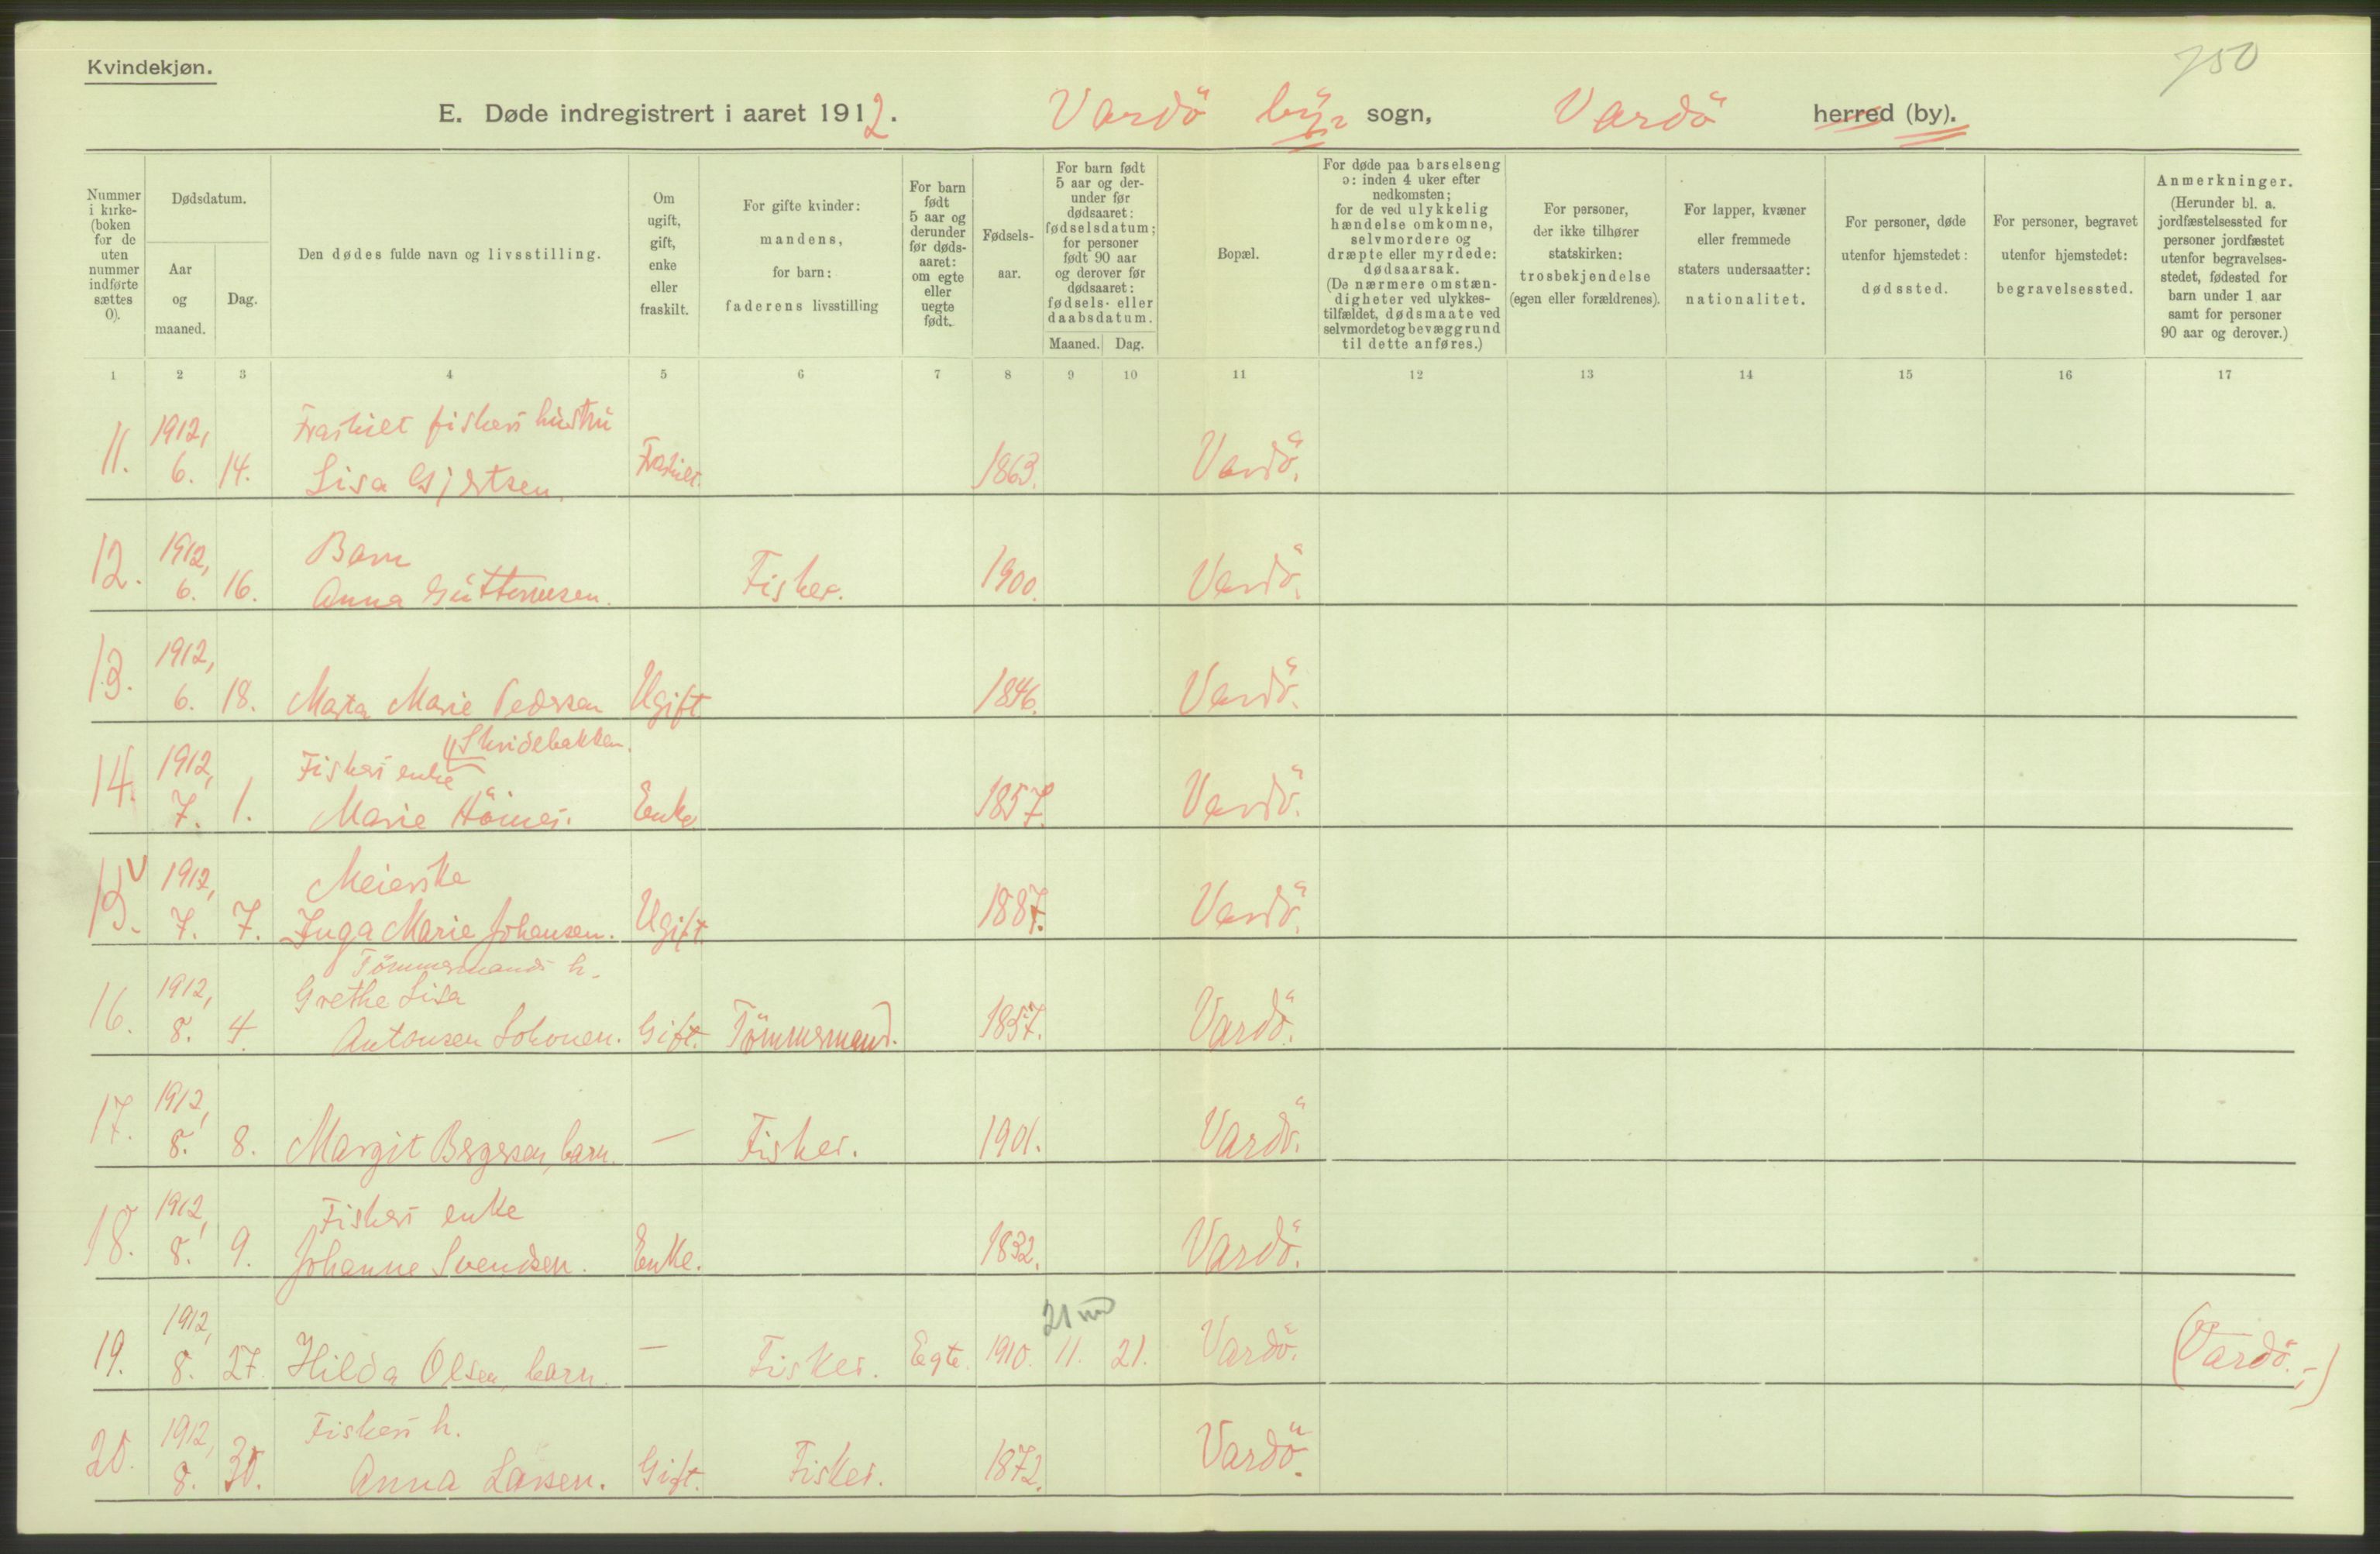 Kvindekjøn.
750
E. Døde indregistrert i aaret 1912. Vardö by, sogn, Vardö herred (by).
Nummer i kirke-(boken for de uten nummer indførte sættes 0).
Dødsdatum.
Aar og maaned.
Dag.
Den dødes fulde navn og livsstilling.
Om ugift, gift, enke eller fraskilt.
For gifte kvinder: mandens, for barn: faderens livsstilling
For barn født 5 aar og derunder før døds-aaret: om egte eller uegte født.
Fødsels-aar.
For barn født 5 aar og der-under før dødsaaret: fødselsdatum; for personer født 90 aar og derover før dødsaaret: fødsels- eller daabsdatum.
Maaned. Dag.
Bopæl.
For døde paa barselseng ɔ: inden 4 uker efter nedkomsten; for de ved ulykkelig hændelse omkomne, selvmordere og dræpte eller myrdede: dødsaarsak. (De nærmere omstæn-digheter ved ulykkes-tilfældet, dødsmaate ved selvmordet og bevæggrund til dette anføres.)
For personer, der ikke tilhører statskirken: trosbekjendelse (egen eller forældrenes).
For lapper, kvæner eller fremmede staters undersaatter: nationalitet.
For personer, døde utenfor hjemstedet: dødssted.
For personer, begravet utenfor hjemstedet: begravelsessted.
Anmerkninger. (Herunder bl. a. jordfæstelsessted for personer jordfæstet utenfor begravelses-stedet, fødested for barn under 1 aar samt for personer 90 aar og derover.)
1 2 3 4 5 6 7 8 9 10 11 12 13 14 15 16 17
11. 1912, 6. 14. Fraskilt fiskers hustru Lisa Gjertsen. Fraskilt. 1863. Vardö.
12. 1912, 6. 16. Barn Anna Guttormsen. Fisker. 1900. Vardö.
13. 1912, 6. 18. Marta Marie Pedersen Ugift 1846. Vardö.
14. 1912, 7. 1. Fiskers enke Marie Höines. Enke 1857. Vardö.
15. 1912, 7. 7. Meierske Inga Marie Johansen. Ugift. 1887. Vardö.
16. 1912, 8. 4. Tömmermands h. Grethe Lisa Antonsen Lohonen. Gift. Tömmermand. 1857. Vardö.
17. 1912, 8. 8. Margit Bergersen, barn. — Fisker. 1901. Vardö.
18. 1912, 8. 9. Fiskers enke Johanne Svendsen. Enke. 1832. Vardö.
19. 1912, 8. 27. Hilda Olsen, barn. — Fisker. Egte. 1910. 11. 21. 21 m Vardö. (Vardö.-)
20. 1912, 8. 30. Fiskers h. Anna Larsen. Gift. Fisker. 1872. Vardö.